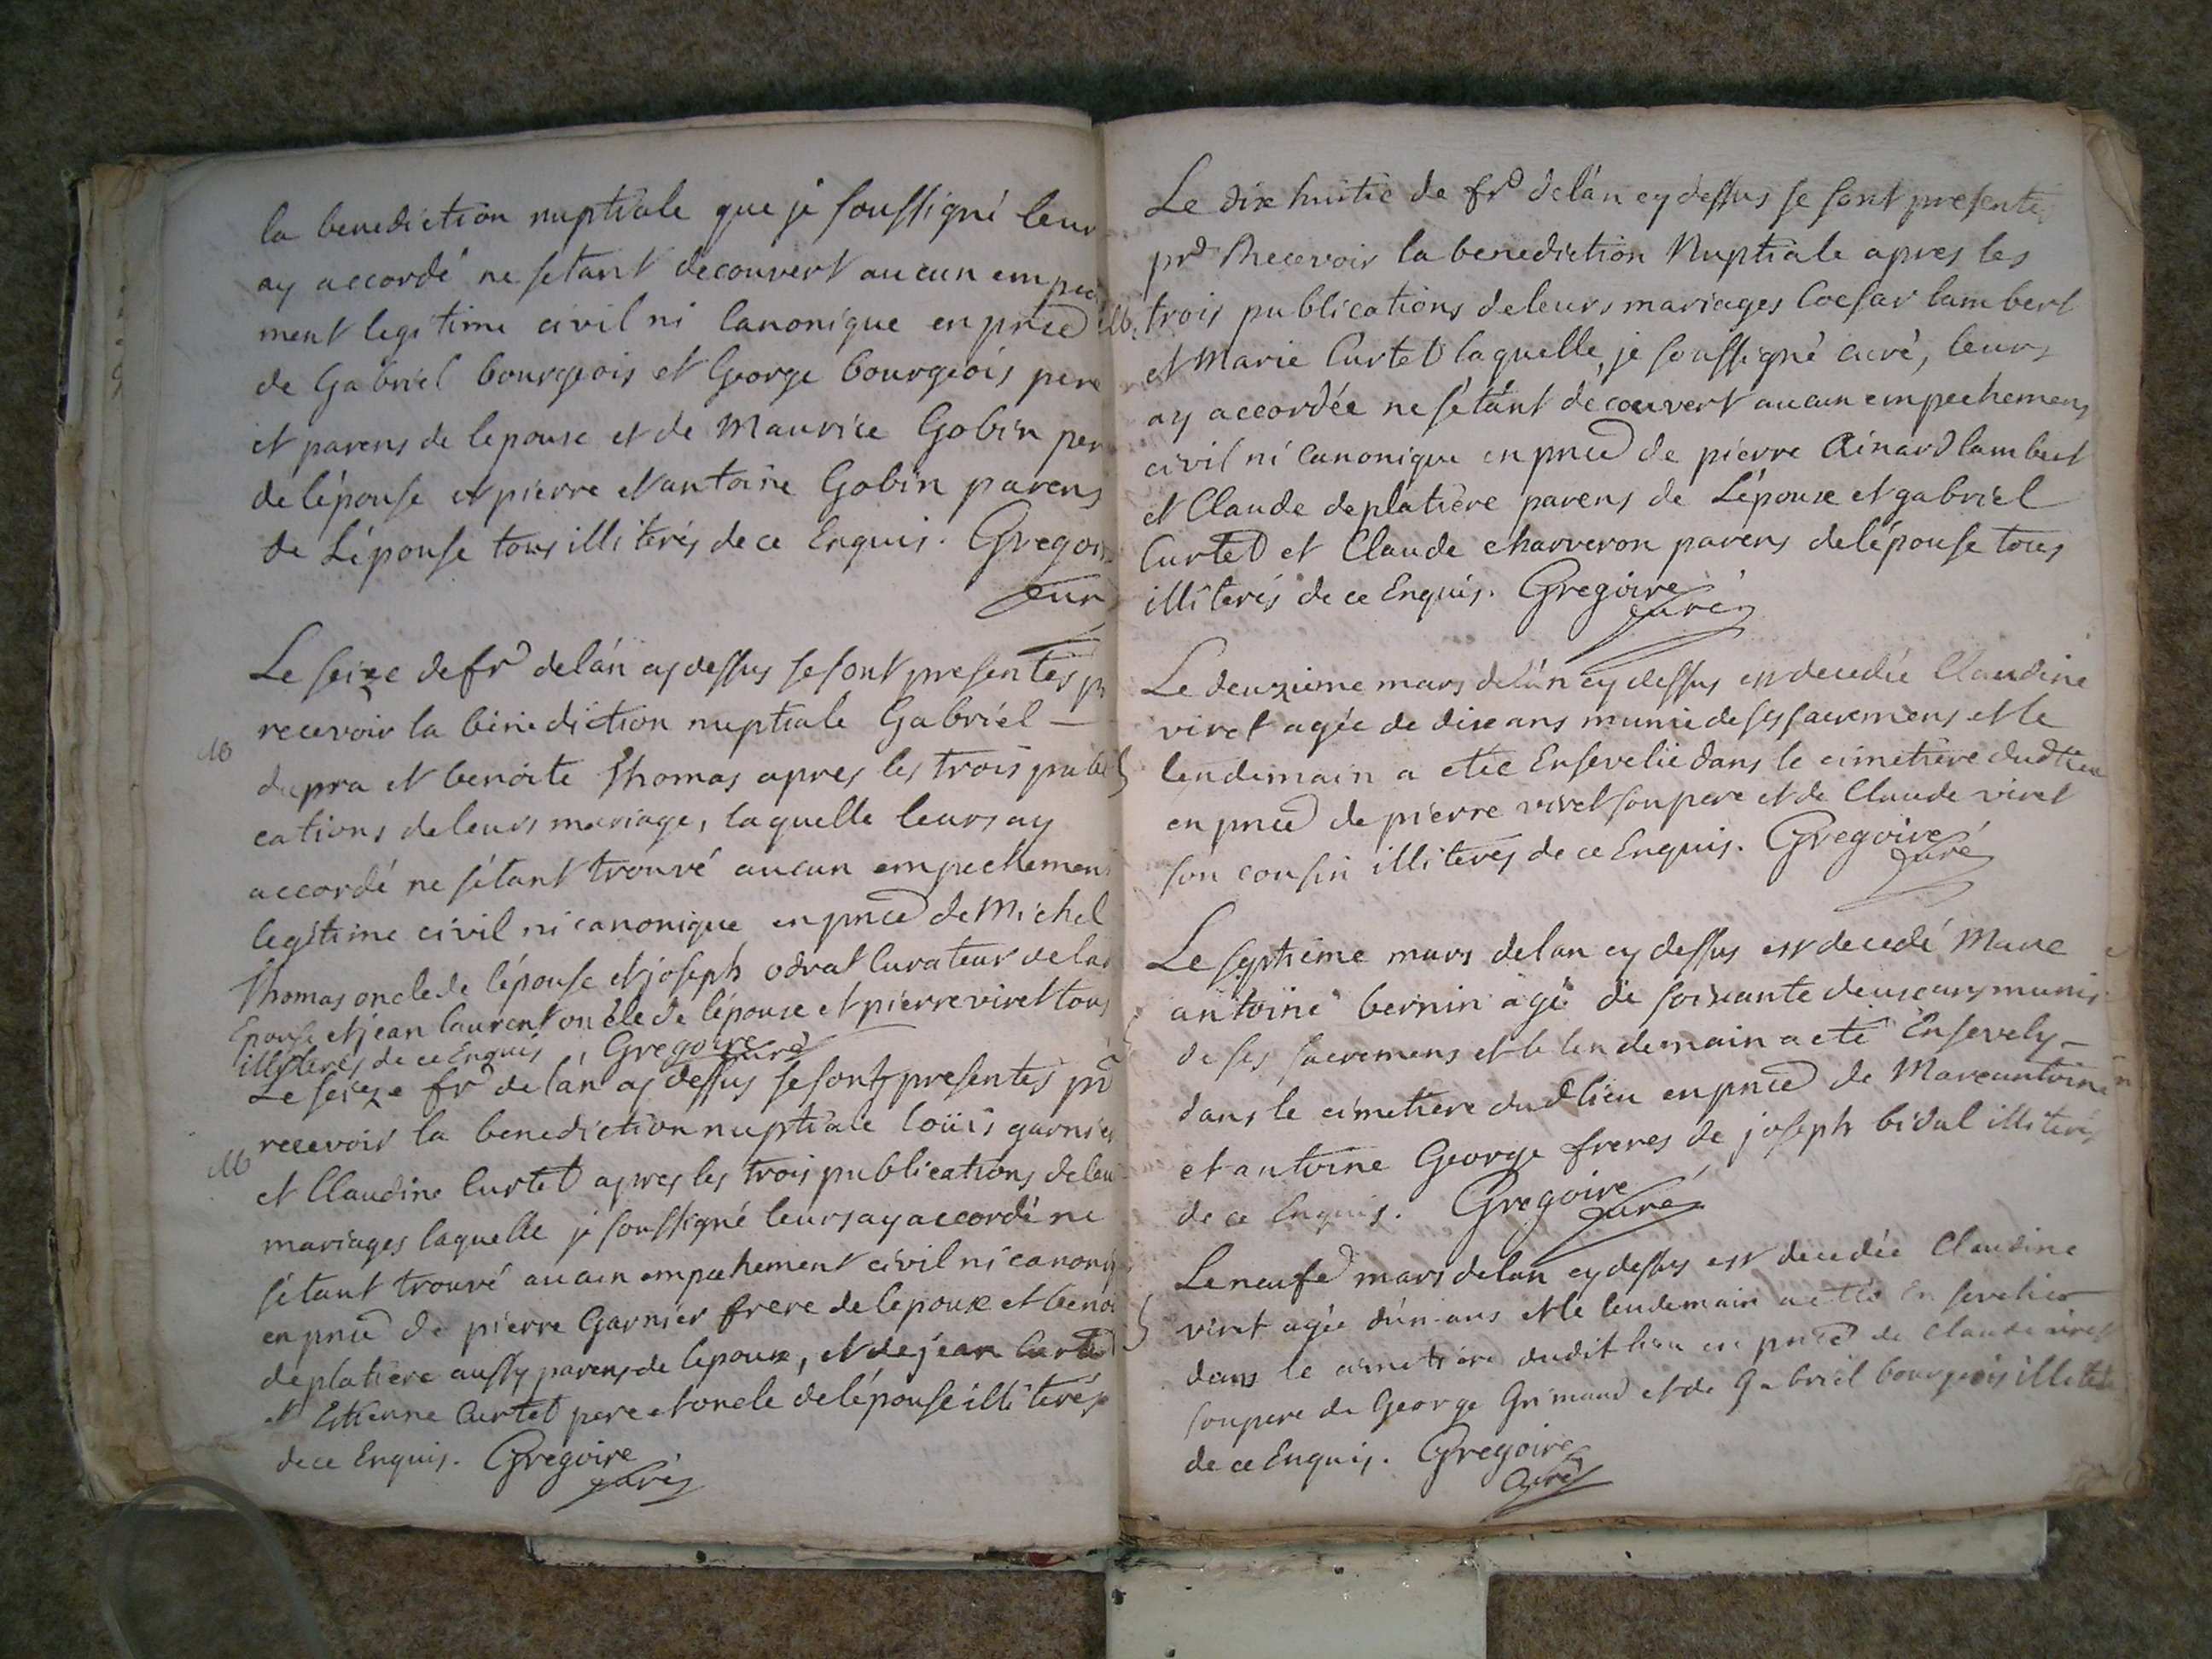 la benediction nuptiale que je soussigné leur
ay accordé ne setant decouvert aucun empec
ment legitime civil ni canonique en pnce
de Gabriel bourgeois et George bourgeois pere
et parens de lepoux et de Maurice Gobin per
de l'épouse et pierre et antoine Gobin parens
de L'épouse tous illiterés de ce Enquis. Gregoi
Cur
Le seize de fr delán cy dessus se sont presentés pr
recevoir la bénédiction nuptiale Gabriel
dupra et benoite Thomas apres les trois publi
cations de leurs mariage, laquelle leurs ay
accordé ne sétant trouvé aucun empechemen
legitime civil ni canonique en pnce de Michel
Thomas oncle de l'épouse et joseph odrat Curateur de la
Epouse et jean laurent oncle de l'épouse et pierre viret tous
illiterés de ce Enquis, Gregoire Curé
Le seize fr de lán cy dessus se sont presentés pr
recevoir la benediction nuptiale loüis garnier
et Claudine Curtet apres les trois publications de leu
mariages laquelle je soussigné leurs ay accordé ne
sétant trouvé aucun empechement civil ni canoni
en pnce de pierre Garnier frere de lepoux et beno
deplatiere aussy parens de lepoux, et de jean Curtet
et Estienne Curtet pere et oncle de l'épouse illiterés
de ce Enquis. Gregoire
Curé
Le dix huitie de fr delán cy dessus se sont presenté
pr Recevoir la benediction Nuptiale apres les
trois publications de leurs mariages Coesar lambert
et Marie Curtet laquelle, je soussigné curé, leurs
ay accordée ne sétant décourvert aucun empechemens
civil ni Canonique en pnce de pierre Ainard lambert
et Claude deplatière parens de L'époux et gabriel
Curtet et Claude charreron parens de l'épouse tous
illiterés de ce Enquis. Gregoire
Curé
Le deuxieme mars delán cy dessus est decedée Claudine
viret agée de dix ans munie de ses sacremens et le
lendemain a etée Ensevelie dans le cimetière dud lieu
en pnce de pierre viret son pere et de Claude viret
son cousin illiterés de ce Enquis. Gregoire
Curé
Le septieme mars delan cy dessus est decedé Marc
antoine bernin agé de soixante deux ans munis
de ses sacremens et le lendemain a eté Ensevely
dans le cimetiere dud lieu en pnce de Marcantoine
et antoine George freres de joseph bidal illiterés
de ce Enquis. Gregoire
Curé
Le neufe mars delan cy dessus est decedée Claudine
viret agée dún ans et le lendemain a etée Ensevelie
dans le cimetiere dudit lieu en pnce de Claude viret
son pere de George Grimaud et de Gabriel bourgeois illite
de ce Enquis. Gregoire
Curé